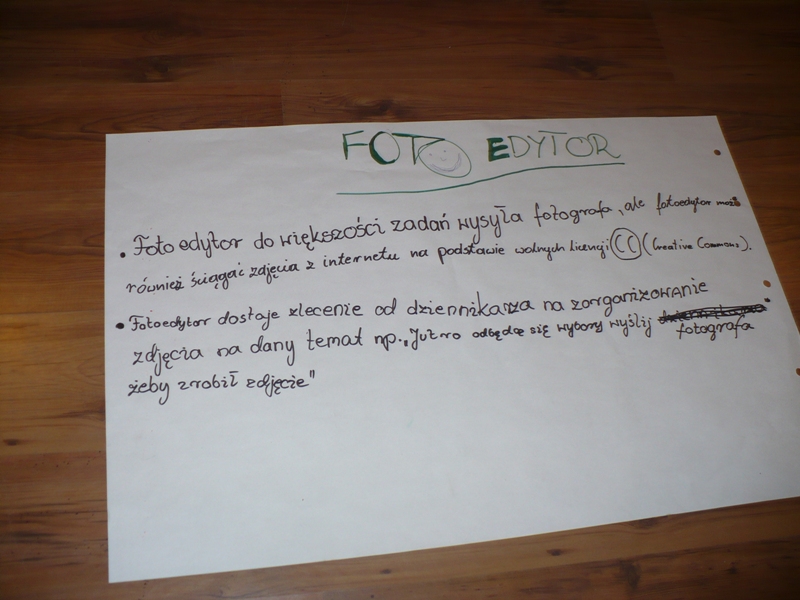 FOTO EDYTOR
• Foto edytor do większości zadań wysyła fotografa, ale fotoedytor może
również ściągać zdjęcia z internetu na podstawie wolnych licencji CC (Creative Commons).
• Fotoedytor dostaje zlecenie od dziennikarza na zorganizowanie
zdjęcia na dany temat np. „Jutro odbędą się wybory wyślij
fotografa
żeby zrobił zdjęcie"